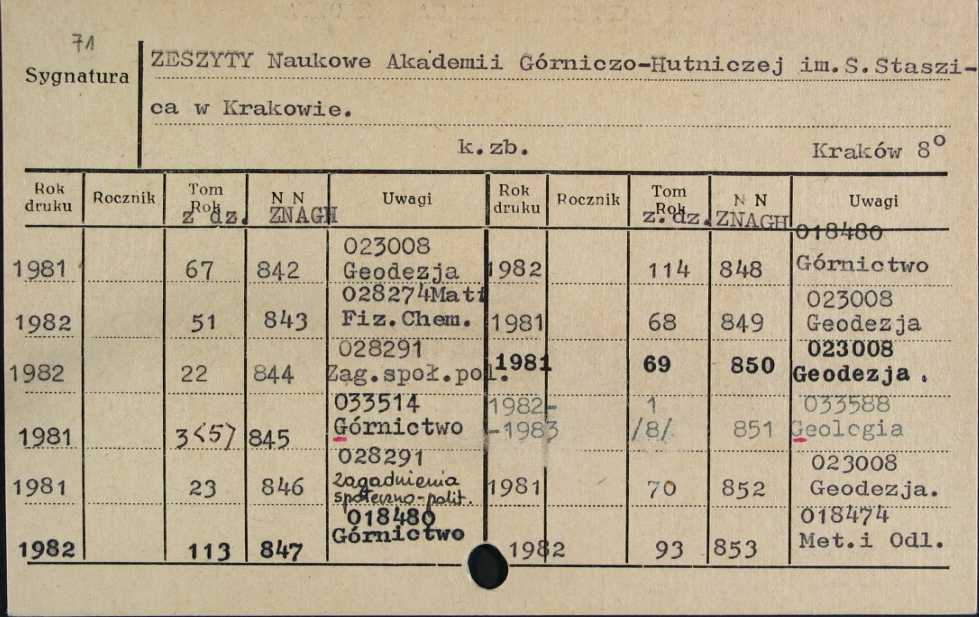 71
Sygnatura
ZESZYTY Naukowe Akademii Górniczo-Hutniczej im.S.Staszi-
ca w Krakowie.
k.zb.
Kraków 8°
Rok druku Rocznik Tom Rok z dz. N N ZNAGH Uwagi Rok druku Rocznik Tom Rok z.dz. N N ZNAGH Uwagi
1981 67 842 023008 Geodezja
1982 51 843 028274Mat Fiz.Chem.
1982 22 844 028291 Zag.społ.pol.
1981 3<5> 845 033514 Górnictwo
1981 23 846 028291 Zagadnienia społeczno-polit.
1982 113 847 018480 Górnictwo
1982 114 848 018480 Górnictwo
1981 68 849 023008 Geodezja
1981 69 850 023008 Geodezja.
1982- -1983 1 /8/ 851 033588 Geologia
1981 70 852 023008 Geodezja.
1982 93 853 018474 Met.i Odl.